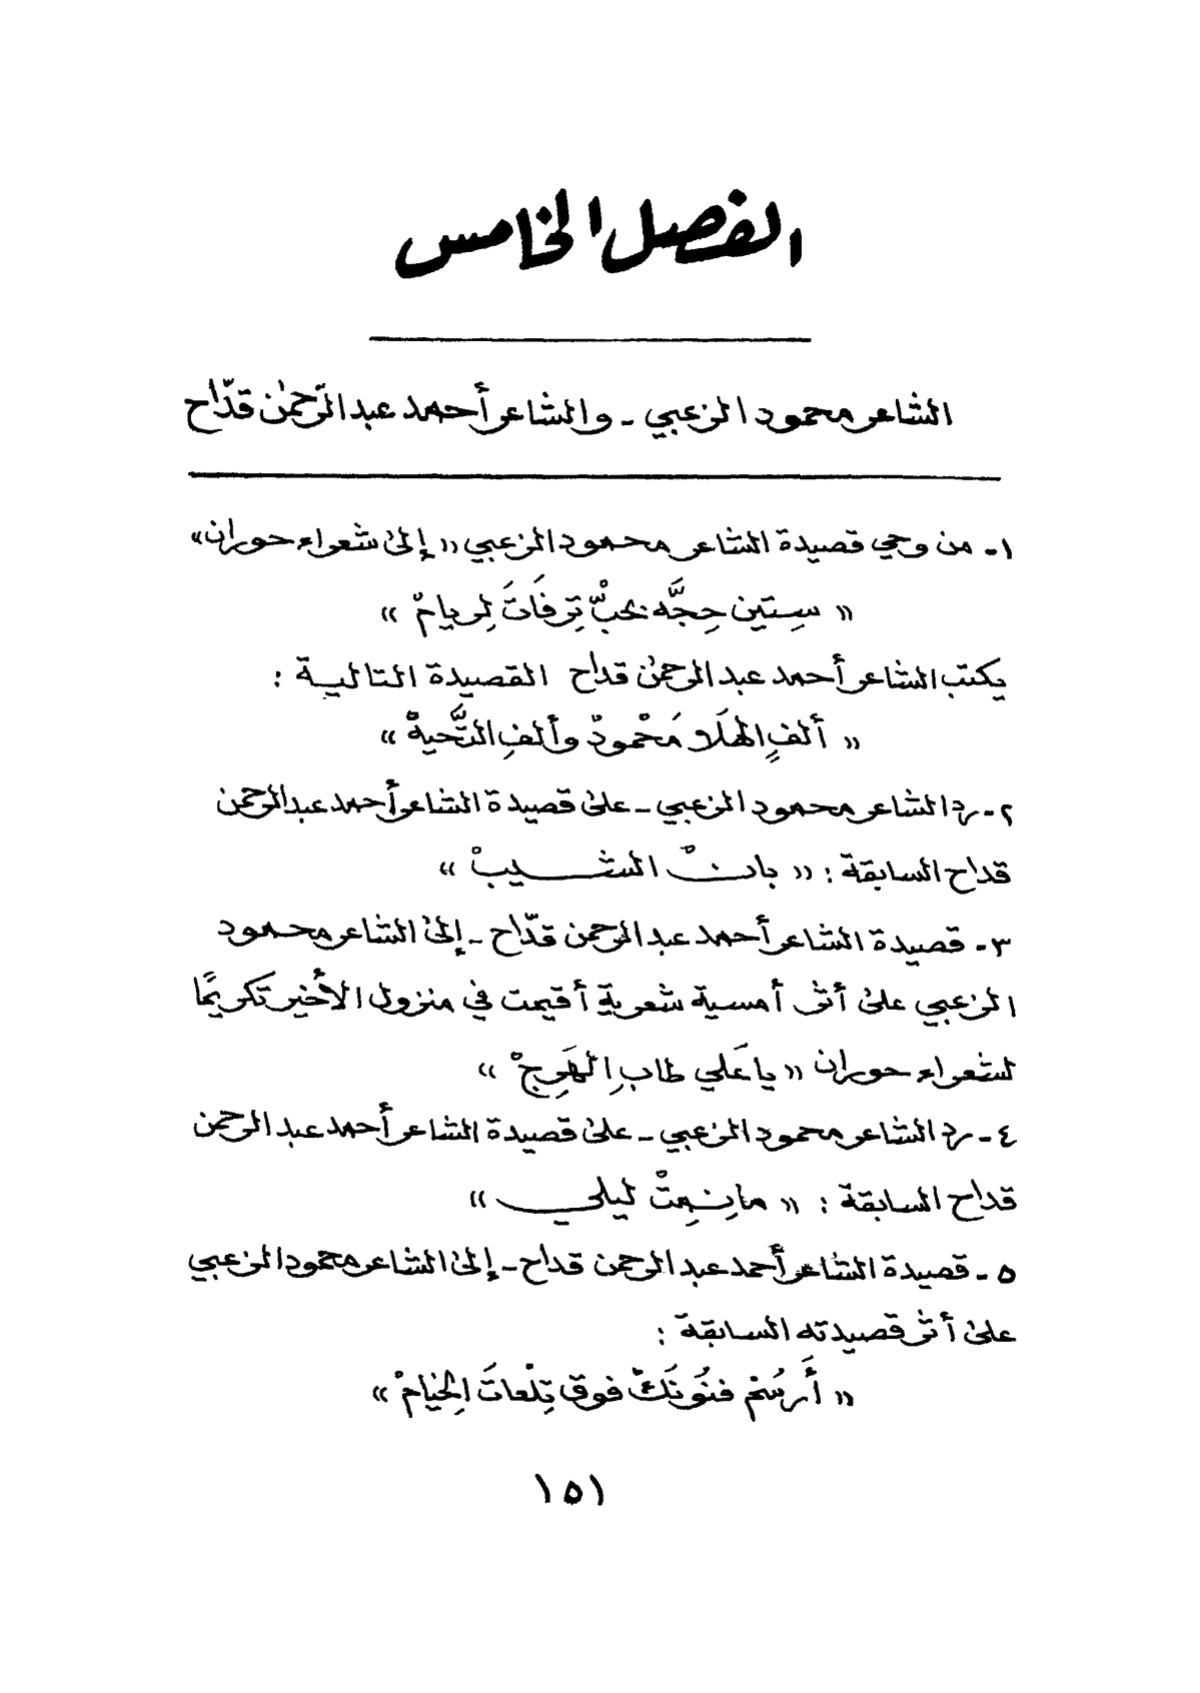 الفصل الخامس
الشاعر محمود الزعبي - والشاعر أحمد عبد الرّحمٰن قدّاح
١- من وحي قصيدة الشاعر محمود الزعبي « إلىٰ شعراء حوران »
« سِتين حِجَّه بحبّْ تِرفَاتَ لِريامْ »
يكتب الشاعر أحمد عبد الرحمٰن قداح القصيدة التالية :
« ألفٍ الهَلَا مَحْمودْ وألفِ التَّحيهْ »
٢- رد الشاعر محمود الزعبي - علىٰ قصيدة الشاعر أحمد عبد الرحمن
قداح السابقة : « بانْ الشيبْ »
٣- قصيدة الشاعر أحمد عبد الرحمن قدّاح - إلىٰ الشاعر محمود
الزعبي علىٰ أثر أمسية شعرية أقيمت في منزول الأخير تكريمًا
لشعراء حوران « يا عَلي طابِ الهَرِجْ »
٤- رد الشاعر محمود الزعبي - علىٰ قصيدة الشاعر أحمد عبد الرحمن
قداح السابقة : « مانِمِتْ ليلي »
٥- قصيدة الشاعر أحمد عبد الرحمن قداح - إلىٰ الشاعر محمود الزعبي
علىٰ أثر قصيدته السابقة :
« أَرسُمْ فنُونَكْ فوق تِلْعاتَ اِلخيامْ »
١٥١